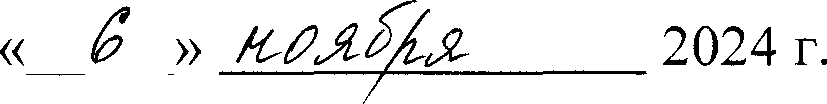 «6» ноября 2024 г.